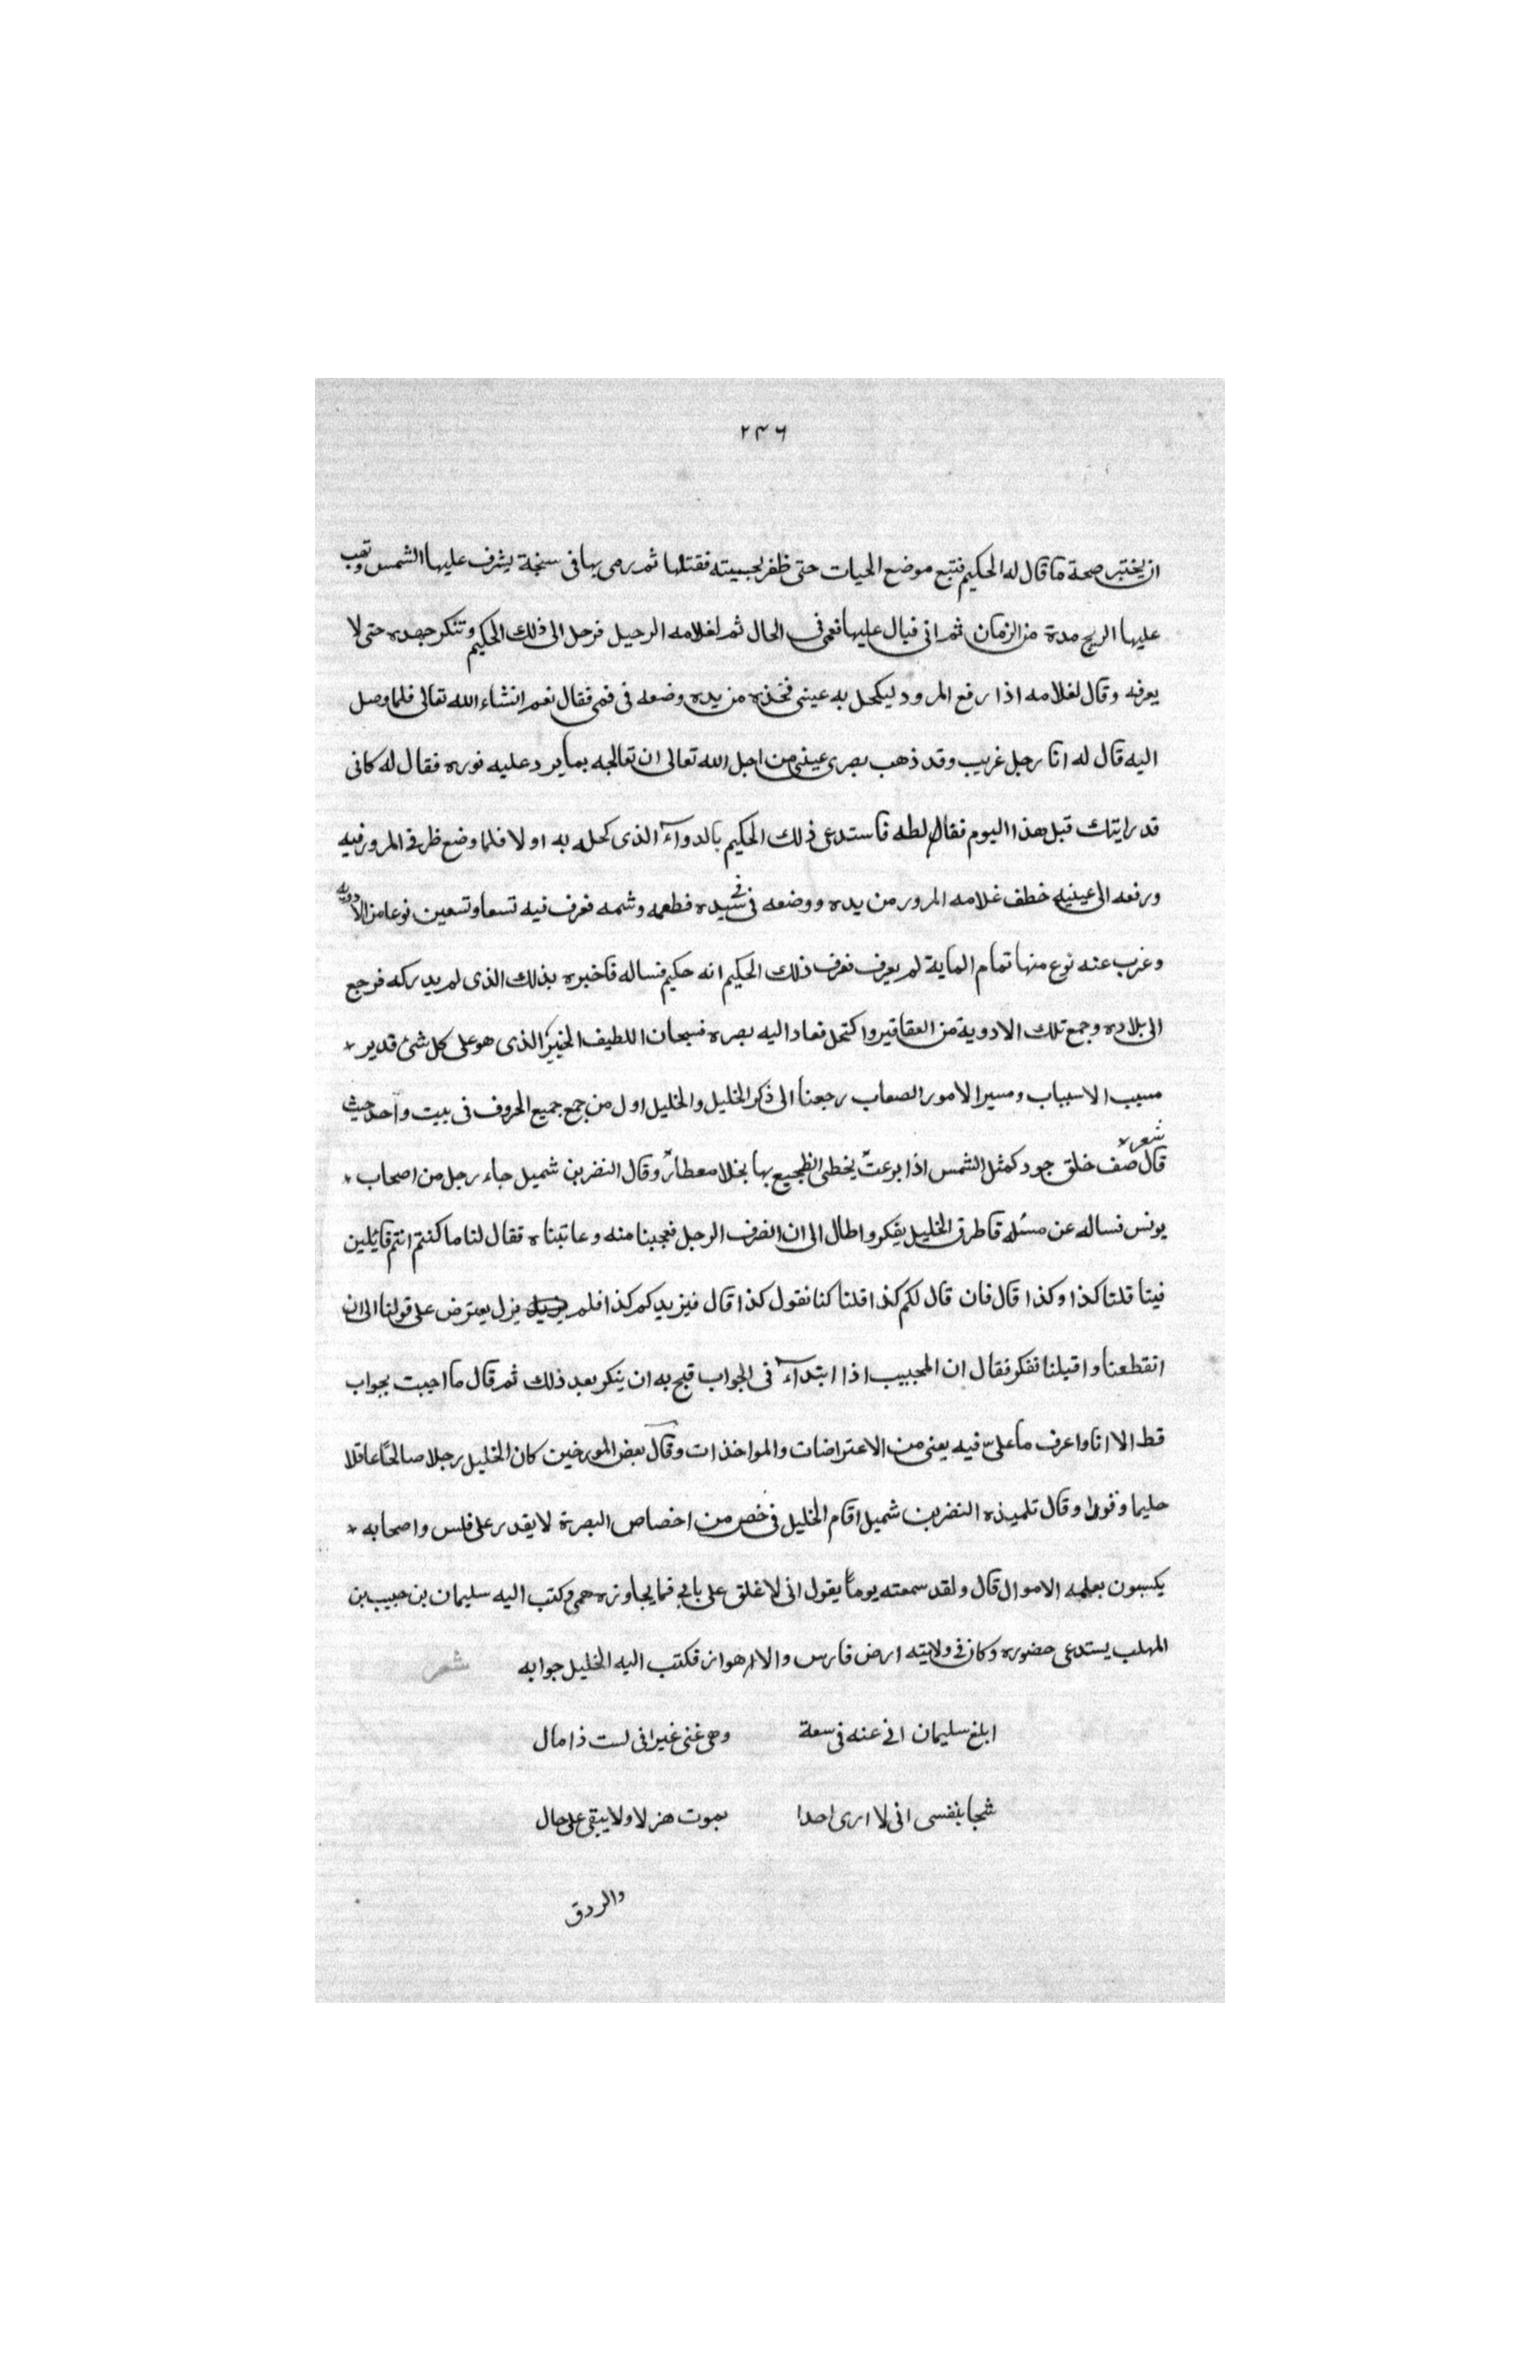 ۲۴۶
ان يختبر صحة ما قال له الحكيم فتبع موضع الحيات حتى ظفر بحيته فقتلها ثم رمى بها فى سبخة يشرف عليها الشمس وتهب
عليها الريح مدة من الزمان ثم اتى فبال عليها فعمى فى الحال ثم لغلامه الرحيل فرحل الى ذلك الحكيم وتنكر جهده حتى لا
يعرفه وقال لغلامه اذا رفع المرود ليكحل به عينى فخذه من يده وضعه فى فمى فقال نعم انشاء الله تعالى فلما وصل
اليه قال له انا رجل غريب وقد ذهب بصرى عينى من اجل الله تعالى ان تعالجه بما يرد عليه نوره فقال له كانى
قد رايتك قبل هذا اليوم فقال لطه فاستدعى ذلك الحكيم بالدوآء الذى كحله به اولا فلما وضع طرفى المرور فيه
ورفعه الى عينيه خطف غلامه المرور من يده ووضعه فى فى سيده فطعمه وشمه فعرف فيه تسعا وتسعين نوعا من الادويه
وغرب عنه نوع منها تمام الماية لم يعرف فعرف ذلك الحكيم انه حكيم فساله فاخبره بذلك الذى لم يدركه فرجع
الى بلاده وجمع تلك الادوية من العقاقير واكتحل فعاد اليه بصره فسبحان اللطيف الخبير الذى هو على كل شئ قدير *
مسبب الاسباب ومسير الامور الصعاب رجعنا الى ذكر الخليل والخليل اول من جمع جميع الحروف فى بيت وآحد حيث
قال شعر * صف خلق جود كمثل الشمس اذا بزعت يخطى الظجيع بها بخلا معطار وقال النضر بن شميل جاء رجل من اصحاب *
يونس فساله عن مسئله فاطرق الخليل يفكر واطال الى ان انصرف الرجل فعجبنا منه وعاتبناه فقال لنا ما كنتم انتم قائلين
فيتا قلنا كذا وكذا قال فان قال لكم كذا قلنا كنا نقول كذا قال فيزيدكم كذا فلم يزل يعترض على قولنا الى ان
انقطعنا واقبلنا نفكر فقال ان المجيب اذا ابتدآء فى الجواب قبح به ان ينكر بعد ذلك ثم قال ما اجبت بجواب
قط الا انا واعرف ما علىّ فيه يعنى من الاعتراضات والمواخذات وقال بعض المورخين كان الخليل رجلا صالحًا عاقلا
حليما وقورا وقال تلميذه النضر بن شميل اقام الخليل فى خص من اخصاص البصرة لا يقدر على فلس واصحابه *
يكسبون بعلمه الاموال قال ولقد سمعته يوماً يقول انى لاغلق على بابى فما يجاوزه همى وكتب اليه سليمان بن حبيب بن
المهلب يستدعى حضوره وكان فى ولايته ارض فارس والاهواز فكتب اليه الخليل جوابه شعر
ابلغ سليمان انى عنه فى سعة وهى غنى غير انى لست ذا مال
شحا بنفسى انى لا ارى احدا يموت هزلا ولا يبقى على حال
والرزق